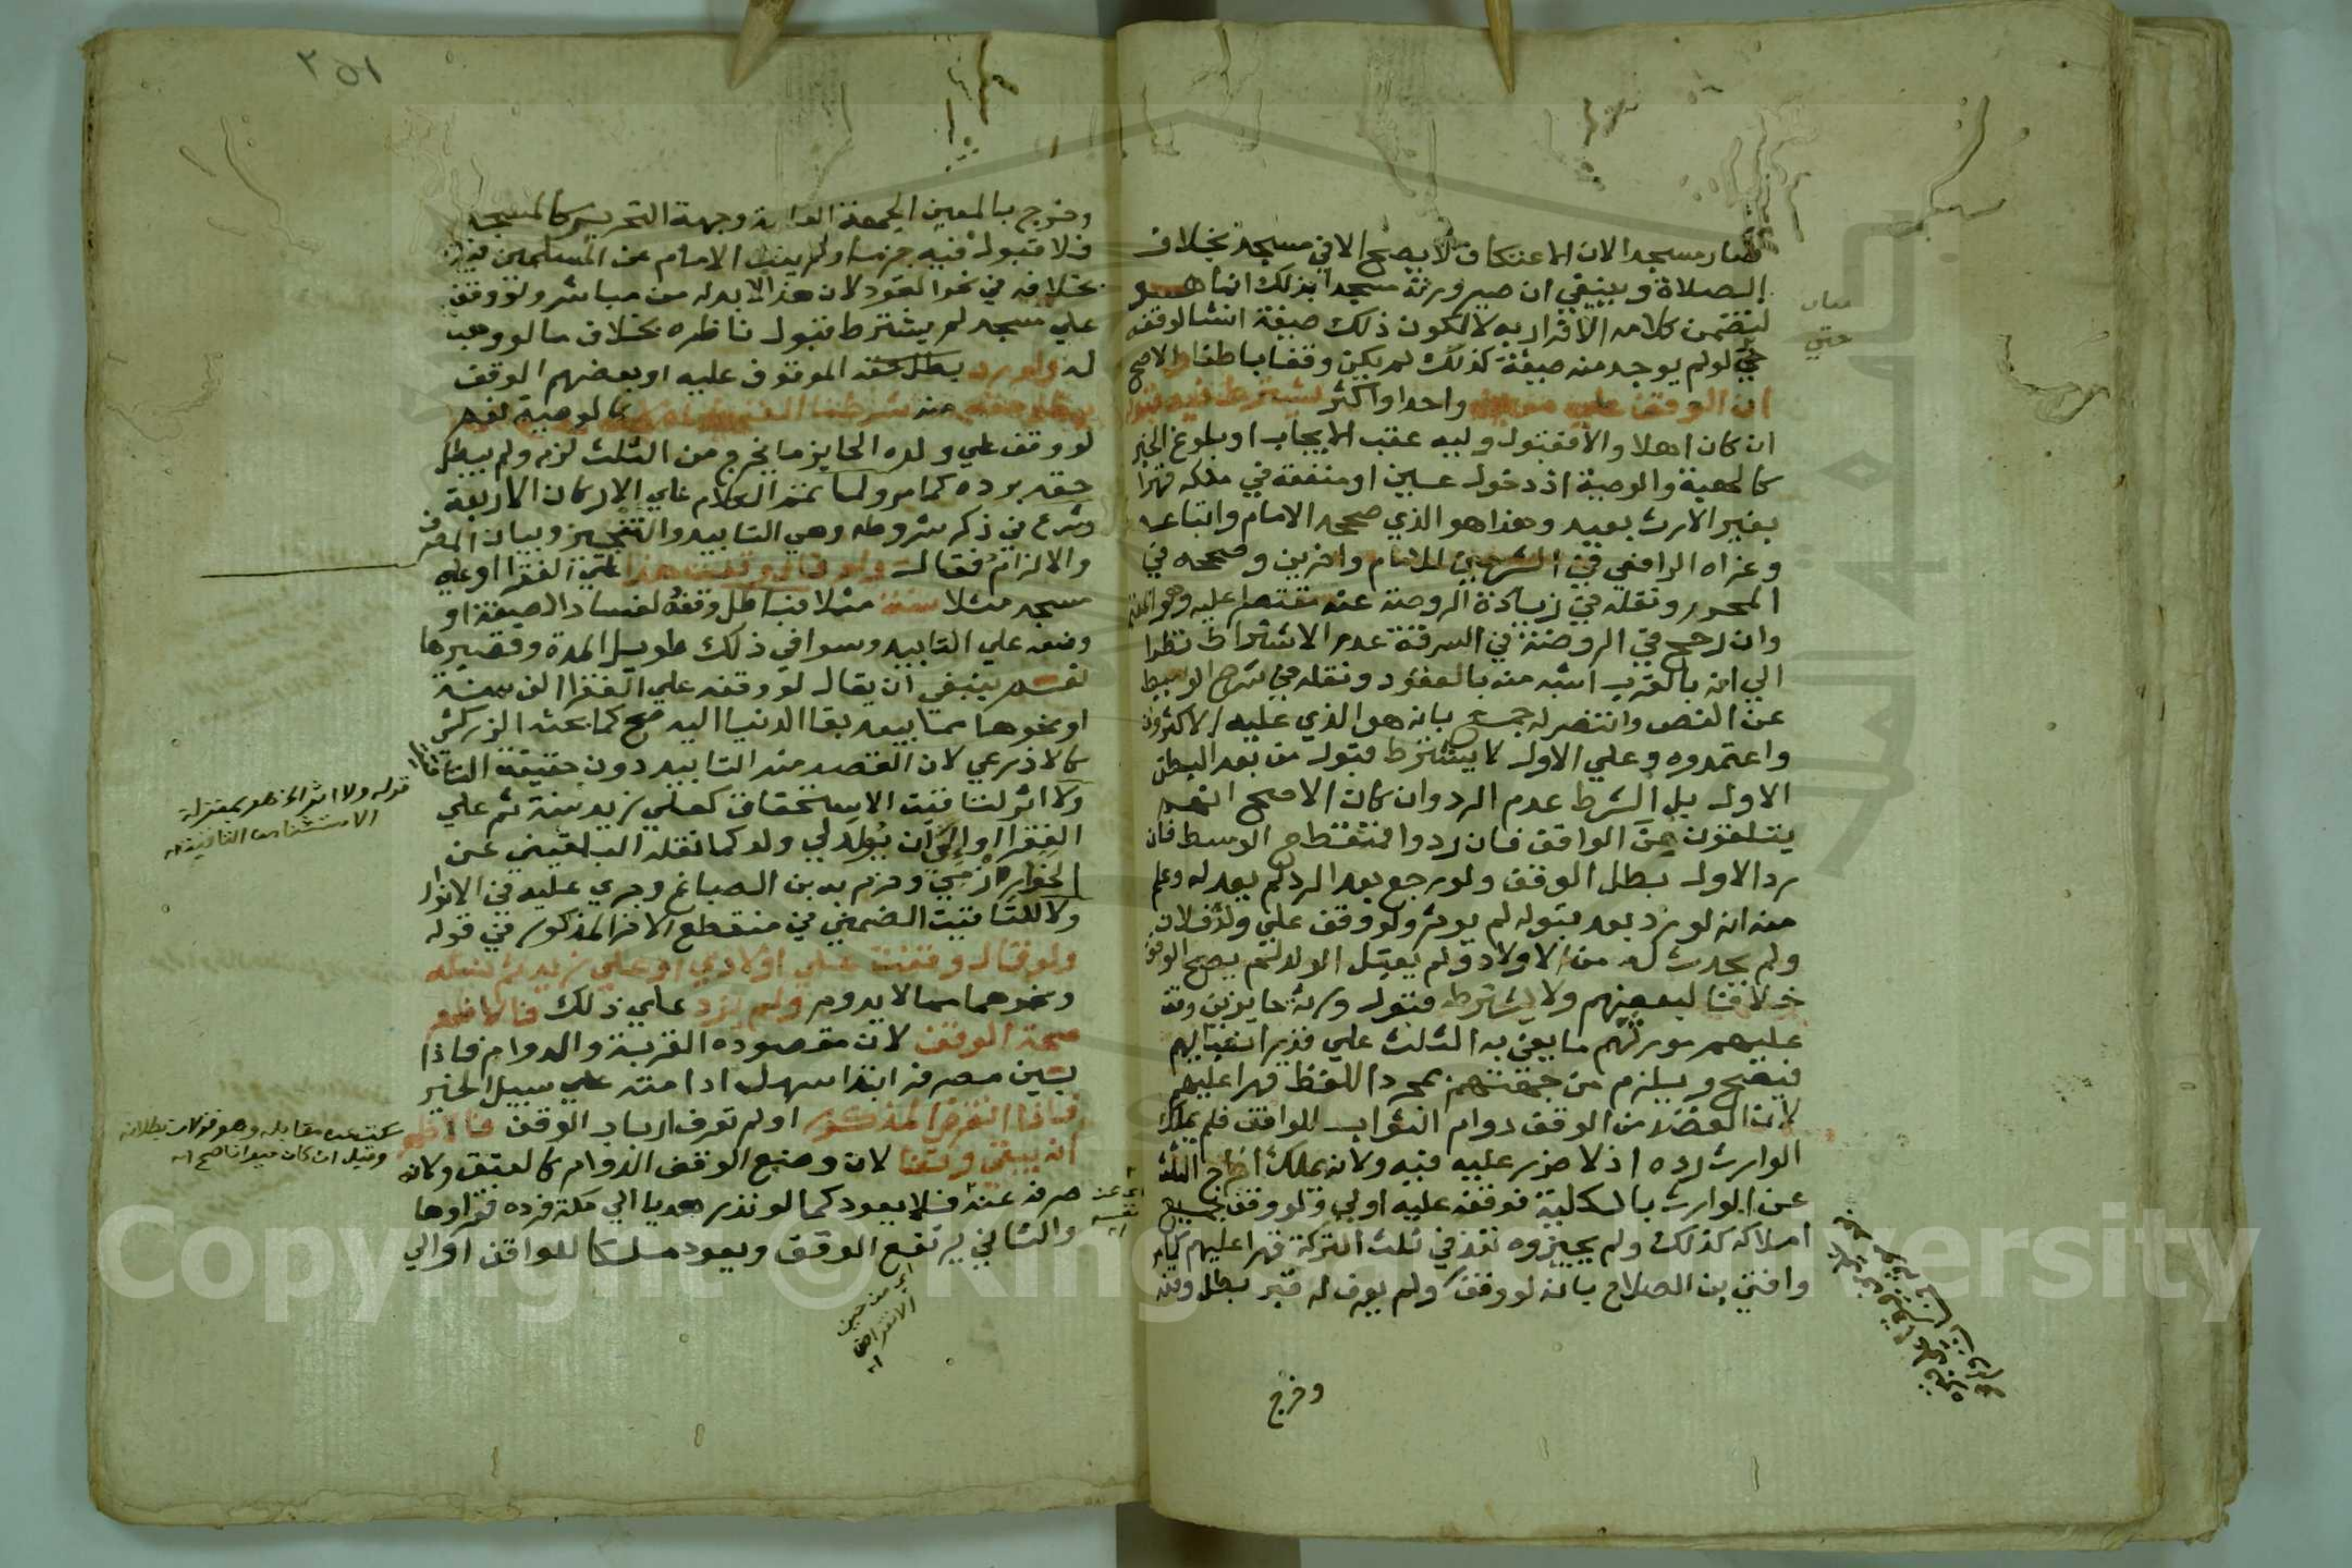 صار مسجدا لان الاعتكاف لا يصح الا في مسجد بخلاف
الصلاة وينبغي ان صيرورته مسجدا بذلك انما هو
لتضمن كلامه الاقرار به لا لكون ذلك صيغة انشا لوقفه
حتي لو لم يوجد منه صيغة كذلك لم يكن وقفا باطنا والاصح
ان الوقف علي معين واحدا او اكثر يشترط فيه قبوله
ان كان اهلا والا فقبول وليه عقب الايجاب او بلوغ الخبر
كالهبة والوصية اذ دخول عين او منفعة في ملكه قهرا
بغير الارث بعيد وهذا هو الذي صححه الامام واتباعه
وعزاه الرافعي في الشرحين للامام واخرين وصححه في
المحرر ونقله في زيادة الروضة عنه مقتصرا عليه وهو المعتمد
وان رجح في الروضة في السرقة عدم الاشتراط نظرا
الي انه بالقرب اشبه منه بالعقود ونقله في شرح الوسيط
عن النص وانتصر له جمع بانه هو الذي عليه الاكثرون
واعتمدوه وعلي الاول لا يشترط قبول من بعد البطن
الاول بل الشرط عدم الرد وان كان الاصح انهم
يتلقون من الواقف فان ردوا فمنقطع الوسط فان
رد الاول بطل الوقف ولو رجع بعد الرد لم يعد له وعلم
منه انه لو رد بعد قبوله لم يوثر ولو وقف علي ولد فلان
ولم يحدث له من الاولاد ولم يقبل الولد لم يصح الوقف
خلافا لبعضهم ولا يشترط قبول ورثة حايزين وقف
عليهم مورثهم ما يفي به الثلث علي قدر انصبائهم
فيصح ويلزم من جهتهم بمجرد اللفظ قهرا عليهم
لان القصد من الوقف دوام الثواب للواقف فلم يملك
الوارث رده اذ لا ضرر عليه فيه ولانه يملك اخراج الثلث
عن الوارث بالكلية فوقفه عليه اولي ولو وقف جميع
املاكه كذلك ولم يجيزوه نفذ في ثلث التركة قهرا عليهم كما مر
وافتي بن الصلاح بانه لو وقف ولم يعرف له قبر بطل وقفه
وخرج
وخرج بالمعين الجهة العامة وجهة التحرير كالمسجد
فلا قبول فيه جزما ولم ينب الامام عن المسلمين فيه
بخلافه في نحو القود لان هذا لا بد له من مباشر ولو وقف
علي مسجد لم يشترط قبول ناظره بخلاف ما لو وهب
له ولو رد بطل حقه الموقوف عليه او بعضهم الوقف
بطل حقه منه شرطنا القبول ام لا كالوصية نعم
لو وقف علي ولده الحايز ما يخرج من الثلث لزم ولم يبطل
حقه برده كما مر ولما تمم الكلام علي الاركان الاربعة
شرع في ذكر شروطه وهي التابيد والتنجيز وبيان المصرف
والالزام فقال ولو قال وقفت هذا علي الفقرا او علي
مسجد مثلا سنة مثلا فباطل وقفه لفساد الصيغة او
وضعه علي التابيد وسوا في ذلك طويل المدة وقصيرها
نعم ينبغي ان يقال لو وقفه علي الفقرا الف سنة
او نحوها مما يبعد بقا الدنيا اليه صح كما بحثه الزركشي
كالاذرعي لان القصد منه التابيد دون حقيقة التاقيت
ولا اثر لتاقيت الاستحقاق كعلي زيد سنة ثم علي
الفقرا او الي ان يولد لي ولد كما نقله البلقيني عن
الخوارزمي وجزم به بن الصباغ وجري عليه في الانوار
ولا للتاقيت الضمني في منقطع الاخر المذكور في قوله
ولو قال وقفت علي اولادي او علي زيد ثم نسله
ونحوهما مما لا يدوم ولم يزد علي ذلك فالاظهر
صحة الوقف لان مقصوده القربة والدوام فاذا
بين مصرفه ابتدا سهل ادامته علي سبيل الخير
فاذا انقرض المذكور او لم تعرف ارباب الوقف فالاظهر
انه يبقي وقفا لان وضع الوقف الدوام كالعتق ولانه
صرفه عنه فلا يعود كما لو نذر هديا الي مكة فرده فقراوها
والثاني يرتفع الوقف ويعود ملكا للواقف او الي
قوله ولا اثر الخ هو بمنزلة
الاستثنا من التاقيت اه
سكت عن مقابله وهو قولان بطلانه
وقيل ان كان حيوانا صح اه
اي من حين
الانقراض
اه
اي عن
نفسه
اه
حتي
٢٥١
Copyright © King Saud University